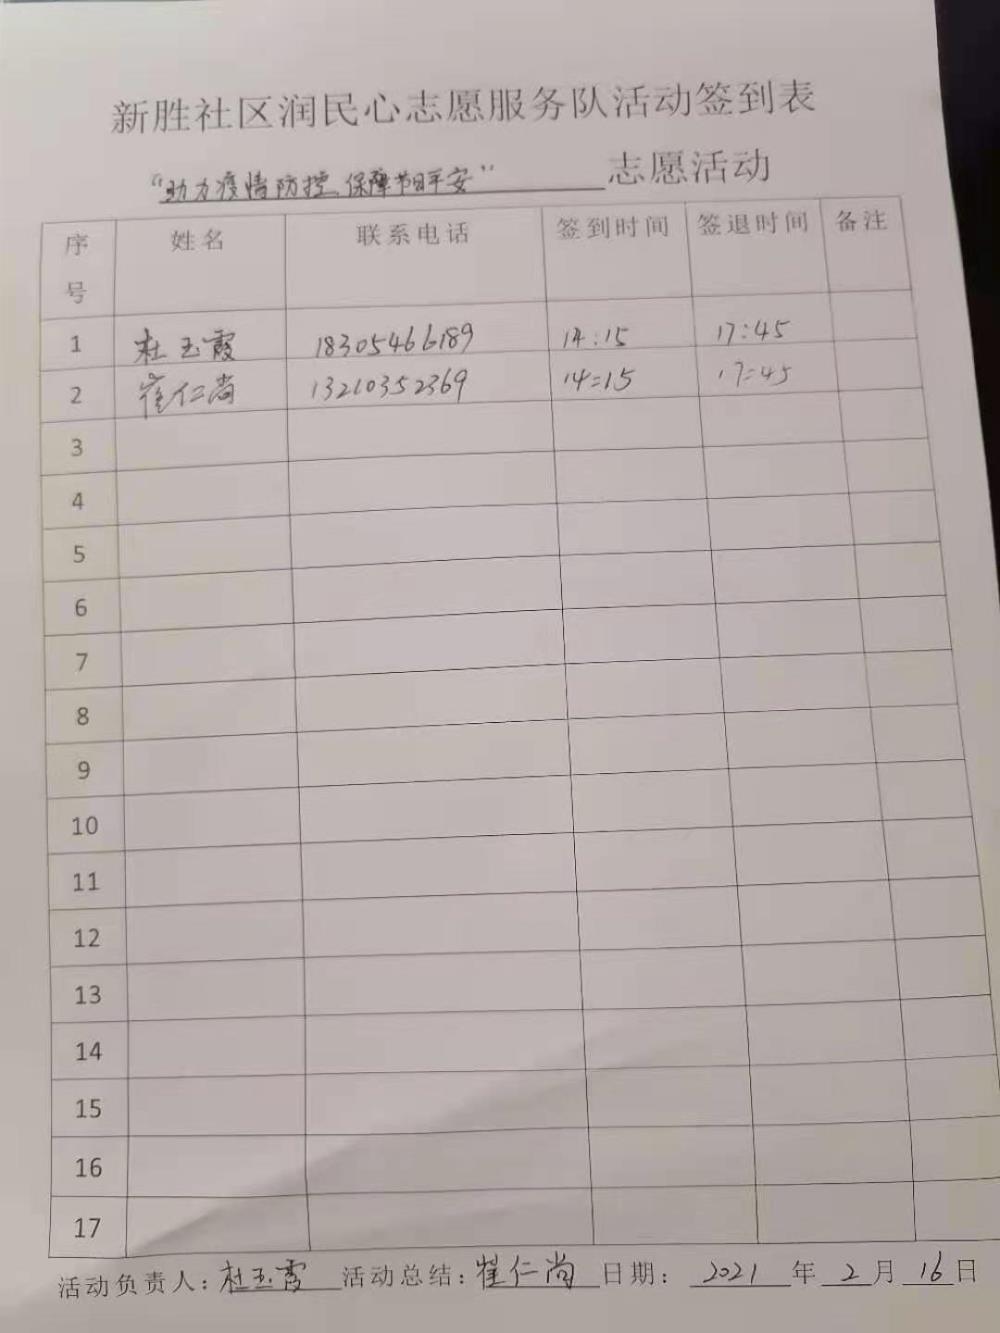 新胜社区润民心志愿服务队活动签到表
“助力疫情防控、保障节日平安” 志愿活动
序号 姓名 联系电话 签到时间 签退时间 备注
1 杜玉霞 18305466189 14:15 17:45
2 崔仁尚 13210352369 14=15 17=45
3
4
5
6
7
8
9
10
11
12
13
14
15
16
17
活动负责人:杜玉霞 活动总结:崔仁尚 日期: 2021 年 2 月 16 日